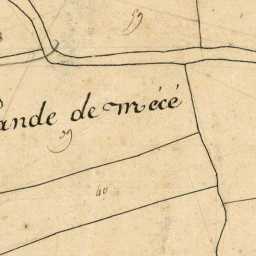 59
ande de mécé
59
40